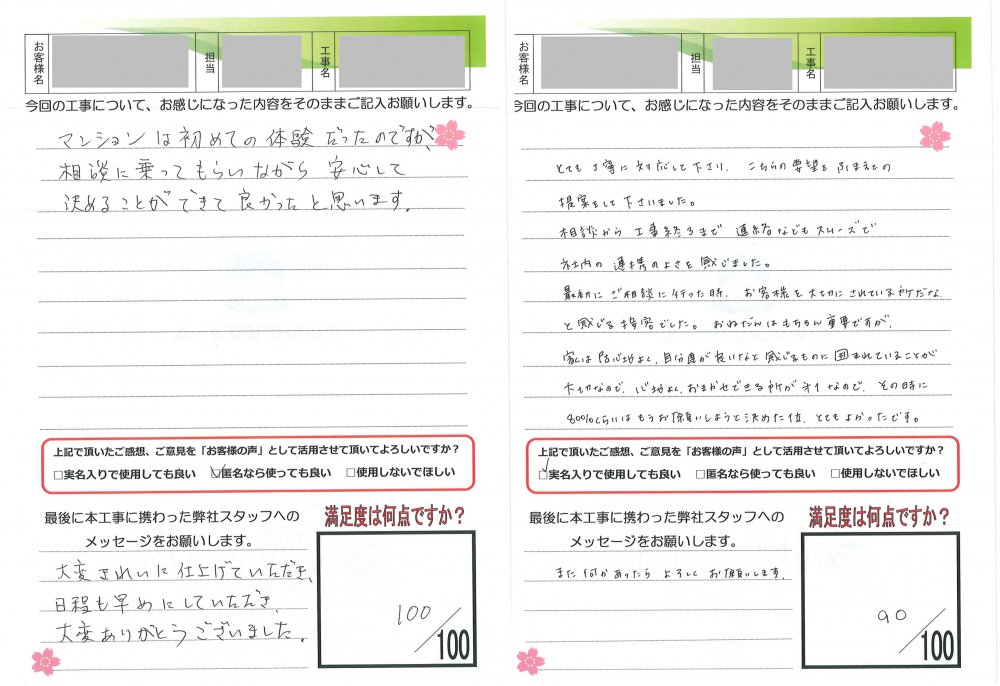 お客様名
担当
工事名
今回の工事について、お感じになった内容をそのままご記入お願いします。
マンションは初めての体験だったのですが、
相談に乗ってもらいながら 安心して
決めることができて良かったと思います。
上記で頂いたご感想、ご意見を「お客様の声」として活用させて頂いてよろしいですか？
□実名入りで使用しても良い ☑匿名なら使っても良い □使用しないでほしい
最後に本工事に携わった弊社スタッフへの
メッセージをお願いします。
大変きれいに仕上げていただき、
日程も早めにしていただき、
大変ありがとうございました。
満足度は何点ですか？
100／100
お客様名
担当
工事名
今回の工事について、お感じになった内容をそのままご記入お願いします。
とても丁寧に対応して下さり、こちらの要望をふまえての
提案をして下さいました。
相談から工事終るまで 連絡などもスムーズで
社内の連携のよさを感じました。
最初にご相談に行った時、お客様を大切にされている所だな
と感じる接客でした。おねだんはもちろん重要ですが、
家は居心地よく、自分達が良いなと感じるものに囲まれていることが
大切なので、心地よく、おまかせできる所が1番なので、その時に
80％くらいはもうお願いしようと決めた位、とてもよかったです。
上記で頂いたご感想、ご意見を「お客様の声」として活用させて頂いてよろしいですか？
☑実名入りで使用しても良い □匿名なら使っても良い □使用しないでほしい
最後に本工事に携わった弊社スタッフへの
メッセージをお願いします。
また何かあったら よろしくお願いします。
満足度は何点ですか？
90／100